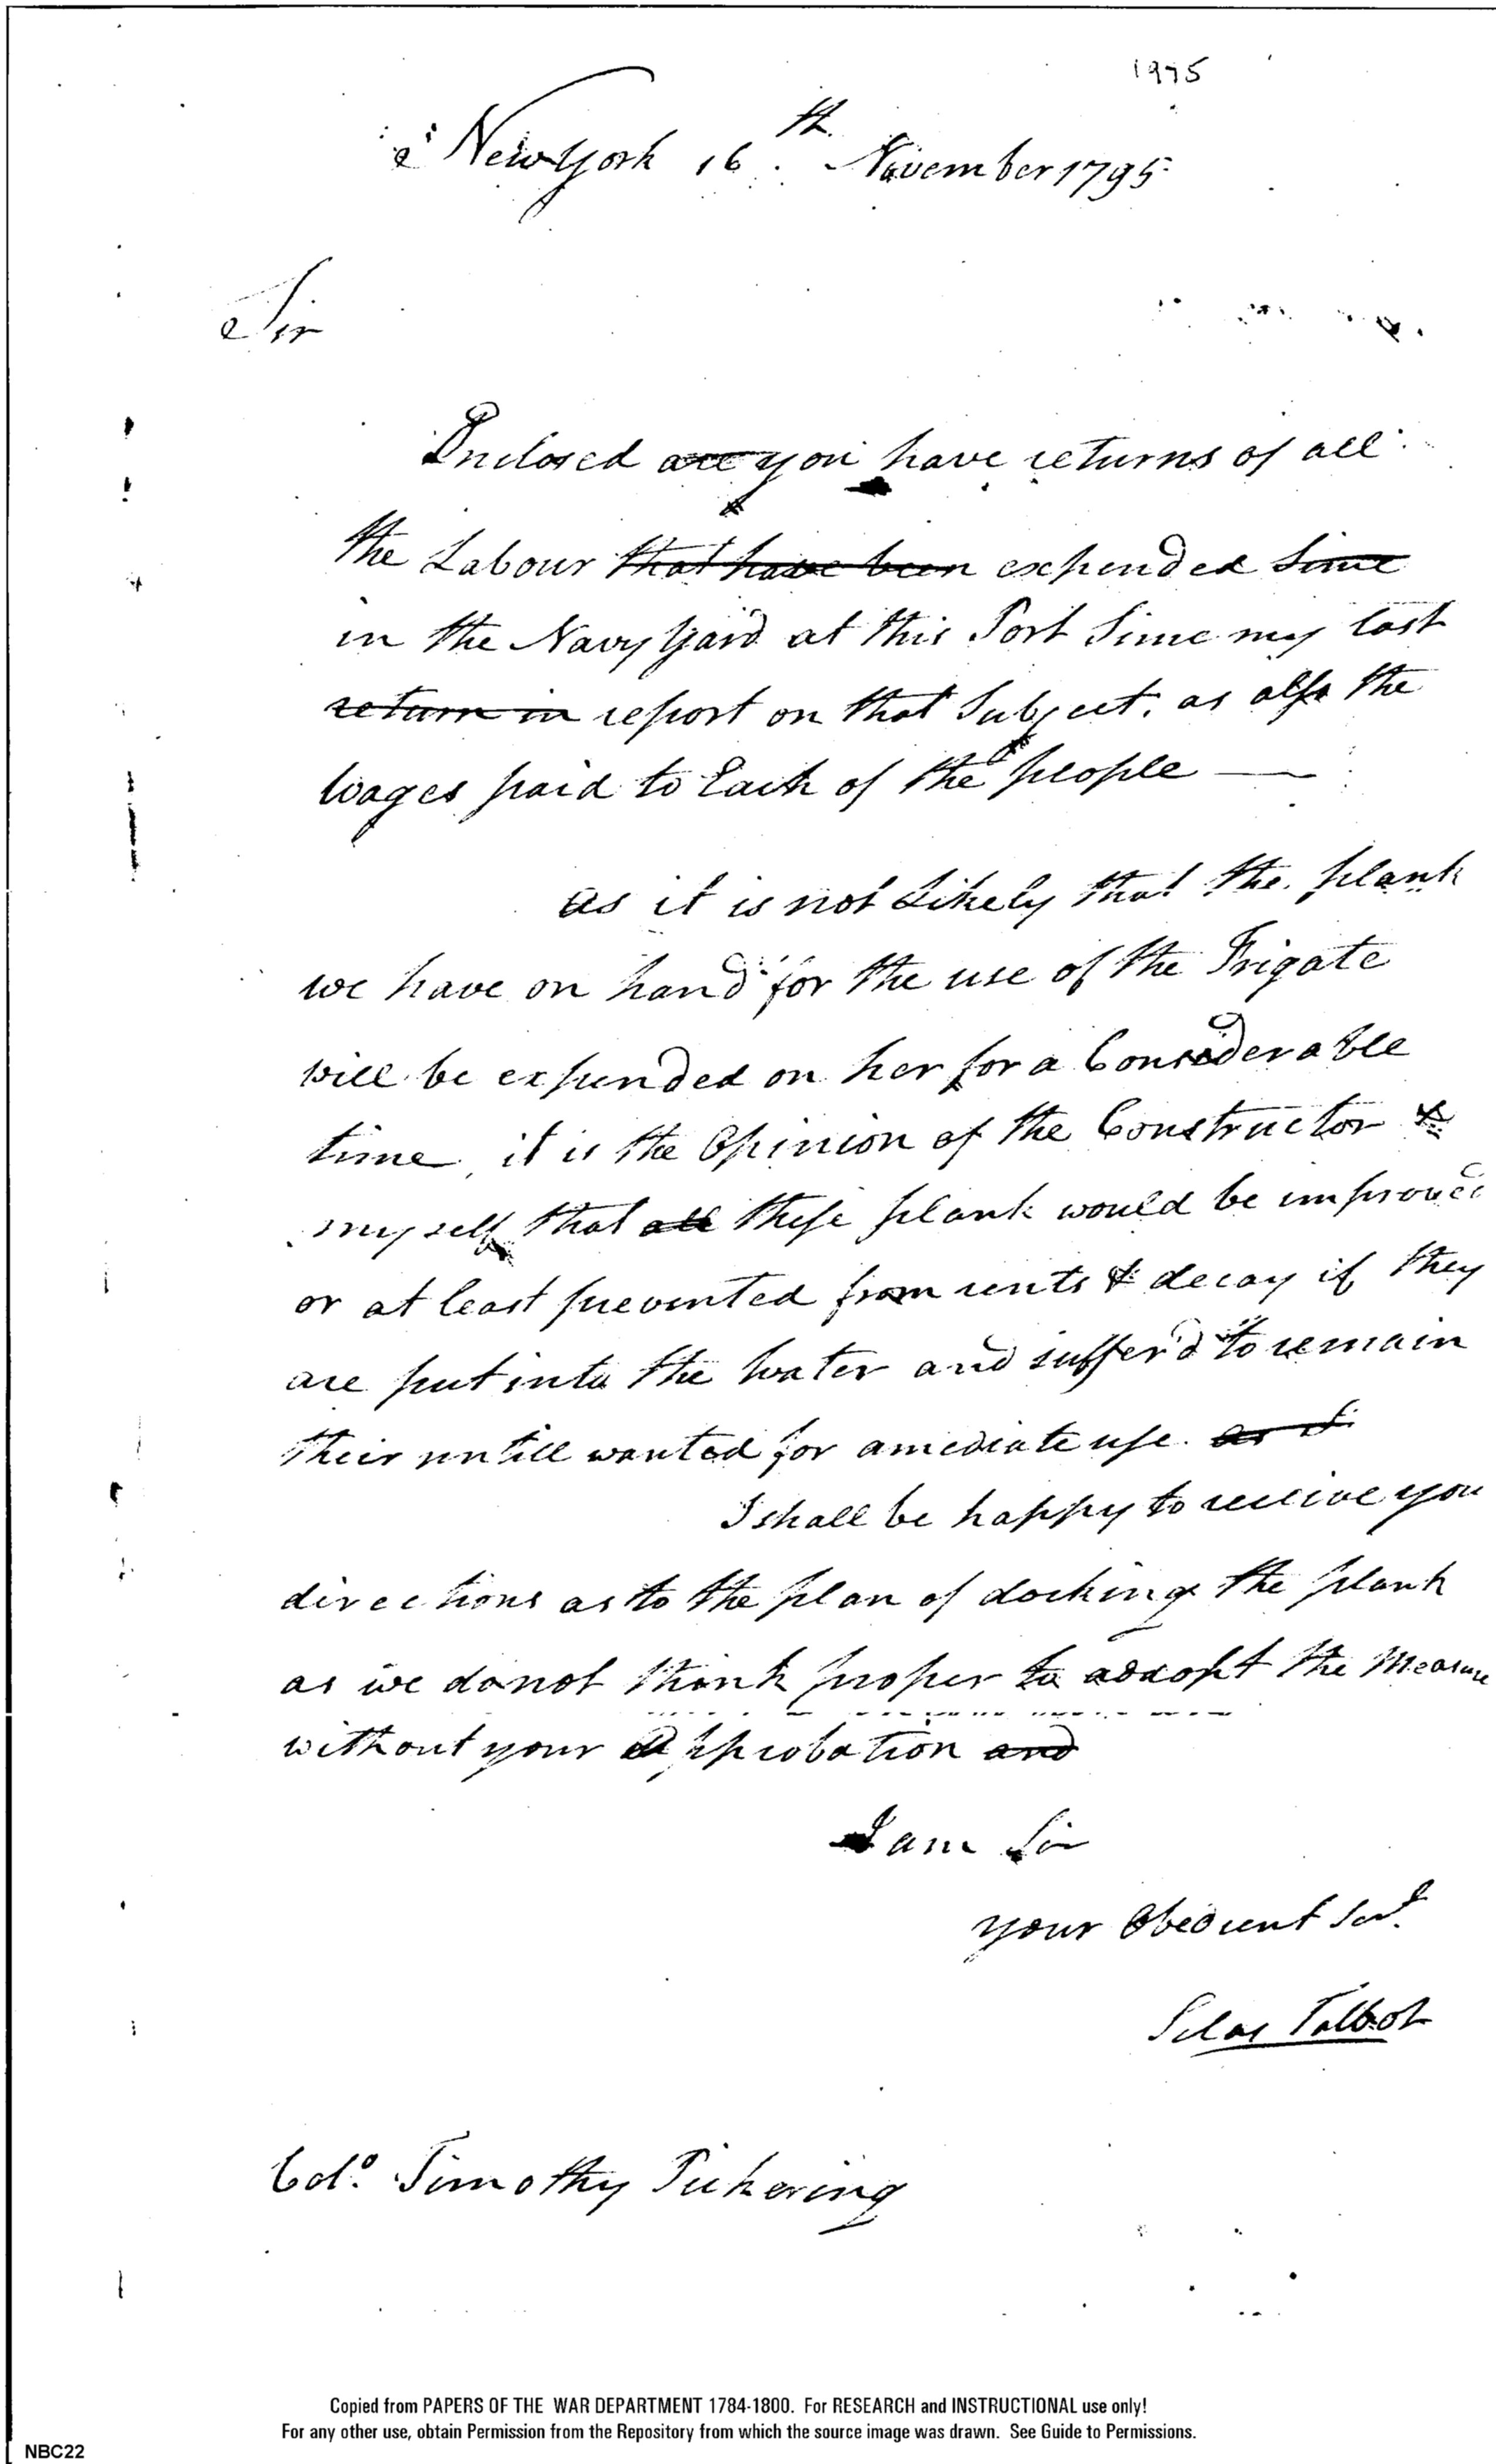 1975
New York 16th. November 1795
Sir
Enclosed are you have returns of all
the Labour that have been expended Since
in the Navy Yard at this Port Since my last
return in report on that Subject, as also the
Wages paid to Each of the people —
as it is not Likely that the plank
we have on hand for the use of the Frigate
will be expended on her for a Considerable
time, it is the Opinion of the Constructor &
my self that all these plank would be improved
or at least prevented from rents & decay if they
are put into the water and suffer'd to remain
their untill wanted for amediate use. as I
I shall be happy to receive you
directions as to the plan of docking the plank
as we do not think proper to addopt the Measure
without your Approbation and
I am Sir
your Obedient Servt.
Silas Talbot
Colo. Timothy Pickering
Copied from PAPERS OF THE WAR DEPARTMENT 1784-1800. For RESEARCH and INSTRUCTIONAL use only!
For any other use, obtain Permission from the Repository from which the source image was drawn. See Guide to Permissions.
NBC22